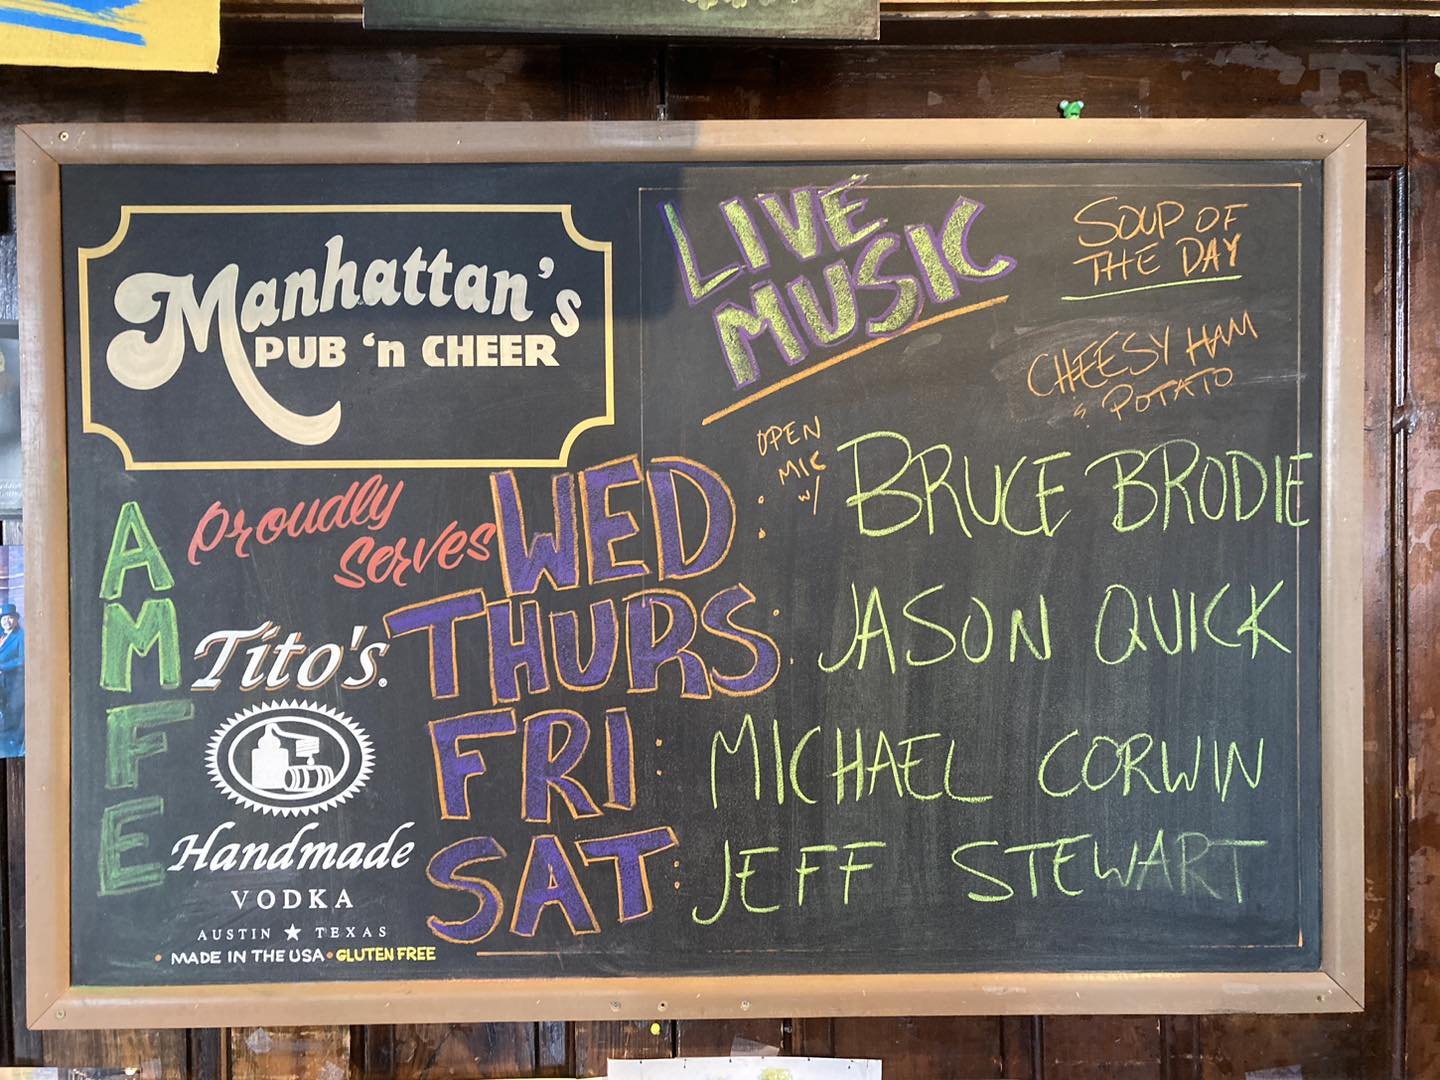 Manhattan's
PUB 'n CHEER
LIVE
MUSIC
SOUP OF
THE DAY
CHEESY HAM
& POTATO
AMFE
Proudly
Serves
Tito's.
Handmade
VODKA
AUSTIN ★ TEXAS
• MADE IN THE USA • GLUTEN FREE
WED : OPEN MIC w/ BRUCE BRODIE
THURS : JASON QUICK
FRI : MICHAEL CORWIN
SAT : JEFF STEWART